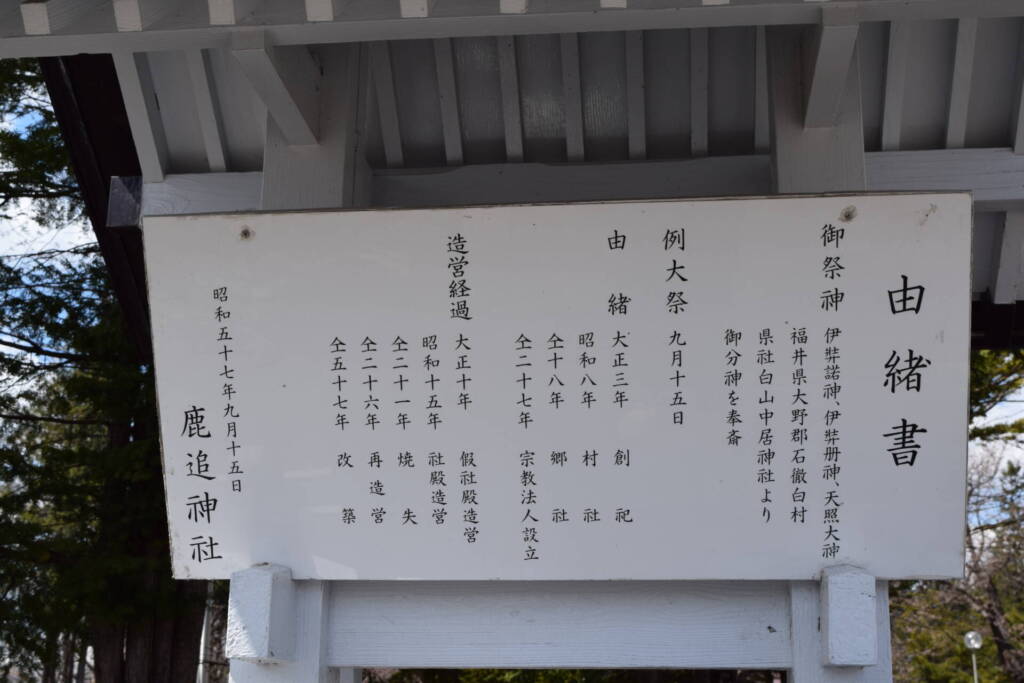 由緒書
御祭神 伊弉諾神、伊弉册神、天照大神
福井県大野郡石徹白村
県社白山中居神社より
御分神を奉斎
例大祭 九月十五日
由緒 大正三年 創祀
昭和八年 村社
仝十八年 郷社
仝二十七年 宗教法人設立
造営経過 大正十年 假社殿造営
昭和十五年 社殿造営
仝二十一年 焼失
仝二十六年 再造営
仝五十七年 改築
昭和五十七年九月十五日
鹿追神社